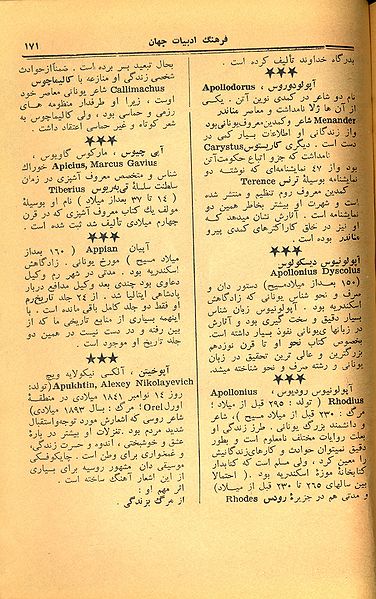 فرهنگ ادبیات جهان
۱۷۱
بدرگاه خداوند تألیف کرده است .
★★★
آپولودوروس ، Apollodorus
نام دو شاعر در کمدی نوین آتن . یکی
از آن ها ژلا نامداشت و معاصر مناندر
Menander شاعر و کمدین معروف یونانی بود
و از زندگانی او اطلاعات بسیار کمی در
دست است . دیگری کاریستوس Carystus
نامداشت که جزو اتباع حکومت آتن
بود و از ۴۷ نمایشنامه‌ای که نوشته دو
نمایشنامه بوسیلهٔ ترنس Terence
کمدین معروف روم تنظیم و منتشر شده
است و شهرت او بیشتر بخاطر همین دو
نمایشنامه است . آثارش نشان میدهد که
او نیز در خلق کاراکترهای کمدی پیرو
مناندر بوده است .
★★★
آپولونیوس دیسکولوس
Apollonius Dyscolus
(۱۵۰ بعداز میلادمسیح) دستور دان و
صرف و نحو شناس یونانی که زادگاهش
اسکندریه بود . آپولونیوس زبان شناس
بسیار دقیق و سخت گیری بود و آثارش
در زبانهای یونانی نفوذ بسیار داشته است.
بخصوص کتاب نحو او تا قرن نوزدهم
بزرگترین و عالی ترین تحقیق در زبان
یونانی و رشته صرف و نحو شناخته میشد.
★★★
آپولونیوس رودیوس ، Apollonius,
Rhodius ( تولد : ۲۹۵ قبل از میلاد ؛
مرگ : ۲۳۰ قبل از میلاد مسیح )، شاعر
و دانشمند بزرگ یونانی . طرز زندگی او
بعلت روایات مختلف نامعلوم است و بطور
دقیق نمیتوان حوادث و کارهای زندگانیش
را معین کرد . ولی مسلم است که کتابدار
کتابخانهٔ موزهٔ اسکندریه بود . ( احتمالا
بین سالهای ۲۶۵ تا ۲۳۰ قبل از میلاد)
و مدتی هم در جزیرهٔ رودس Rhodes
بحال تبعید بسر برده است . ضمناً از حوادث
شخصی زندگی او منازعه با کالیماچوس
Callimachus شاعر یونانی معاصر خود
اوست ، زیرا او طرفدار منظومه های
رزمی و حماسی بود ، ولی کالیماچوس به
شعر کوتاه و غیر حماسی اعتقاد داشت .
★★★
آپی چیوس ، مارکوس گاویوس ،
Apicius, Marcus Gavius خوراک
شناس و متخصص معروف آشپزی در زمان
سلطنت سلسلهٔ تی‌به‌ریوس Tiberius
( ۱۴ تا ۳۷ بعداز میلاد ) نام او بوسیلهٔ
مولف یک کتاب معروف آشپزی که در قرن
چهارم میلادی تألیف شد ثبت شده است .
★★★
آپیان Appian ( ۱۶۰ بعداز
میلاد مسیح ) مورخ یونانی . زادگاهش
اسکندریه بود . مدتی در شهر رم وکیل
دعاوی بود چندی بعد وکیل مدافع دربار
پادشاهی ایتالیا شد . از ۲۴ جلد تاریخ رم
او فقط دو جلد کامل باقی مانده است . با
اینهمه بسیاری از منابع تاریخی ما که از
بین رفته و در دست نیست در همین دو
جلد تاریخ او موجود است .
★★★
آپوخیتن ، آلکسی نیکولایه ویچ
Apukhtin, Alexey Nikolayevich (تولد:
روز ۱۴ نوامبر ۱۸۴۱ میلادی در منطقهٔ
اورل Orel ؛ مرگ : بسال ۱۸۹۳ میلادی)
شاعر روسی که اشعارش مورد توجه و استقبال
شدید مردم بود . تغزلات او بیشتر در بارهٔ
عشق و خوشبختی ، اندوه و حسرت زندگی،
و غمخواری برای وطن است . چایکوفسکی
موسیقی دان مشهور روسیه برای بسیاری
از این اشعار آهنگ ساخته است .
اثر مهم او :
از مرگ بزندگی .